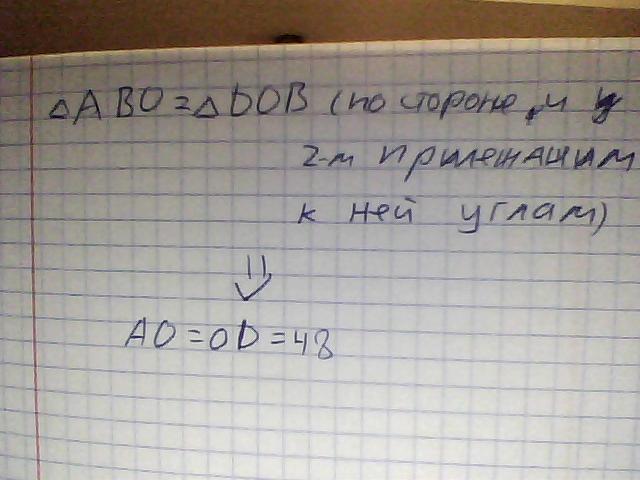 △ABO=△DOB (по стороне и
2-м прилежащим
к ней углам)
⇓
AO=OD=48